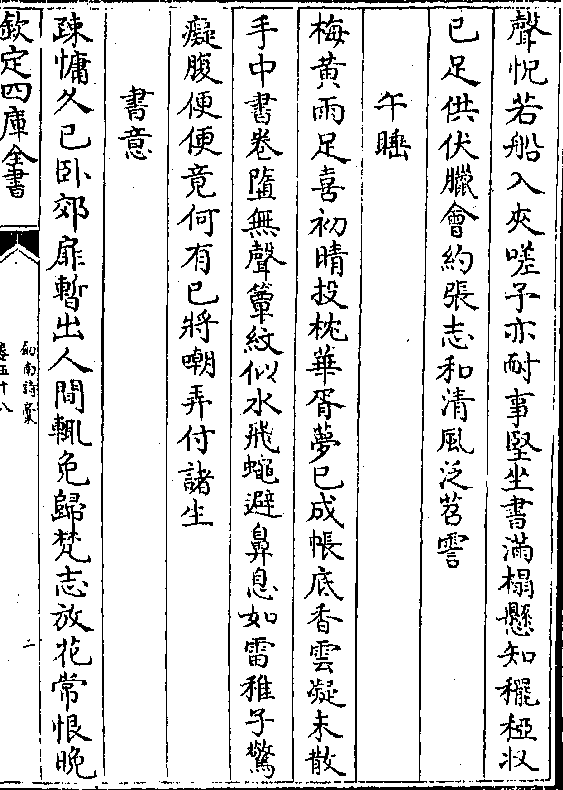 聲怳若船入夾嗟予亦耐事堅坐書滿榻懸知䆉稏收
已足供伏臘會約張志和清風泛苕霅
午睡
梅黃雨足喜初晴投枕華胥夢已成帳底香雲凝未散
手中書卷墮無聲簟紋似水飛蠅避鼻息如雷稚子驚
癡腹便便竟何有已將嘲弄付諸生
書意
疎慵久已卧郊扉暫出人間輒免歸梵志放花常恨晚
欽定四庫全書
劍南詩稾
卷五十八
二